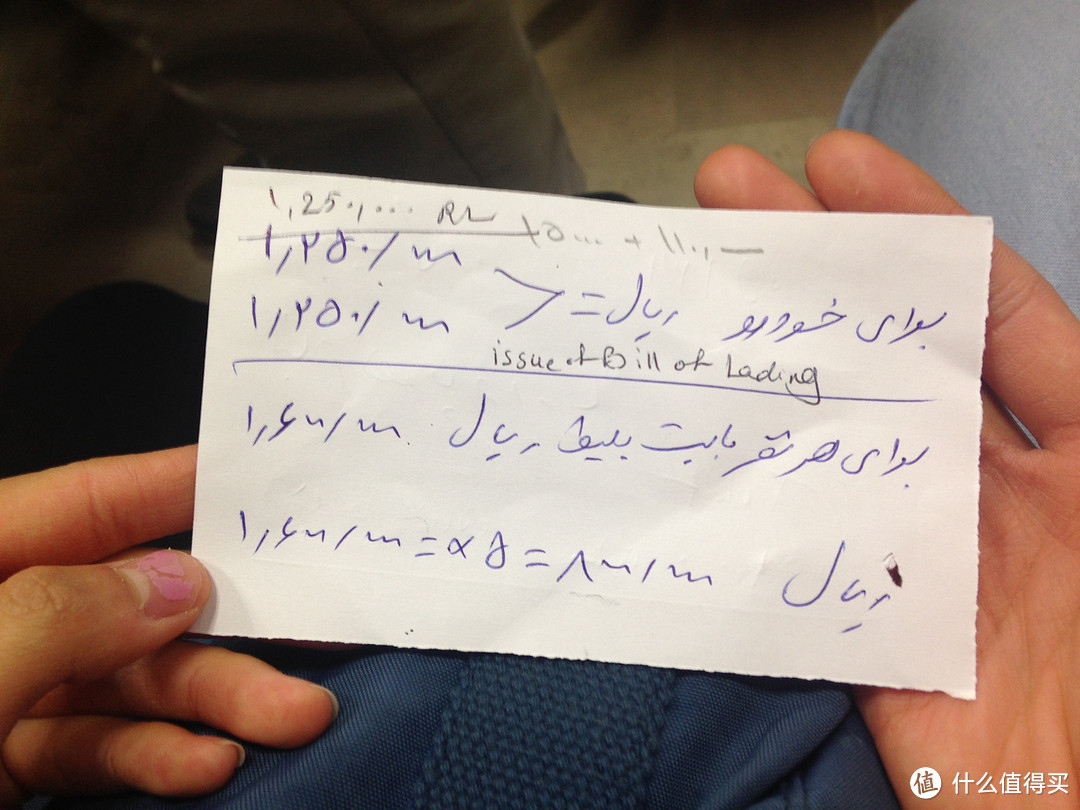 ۱,25۰,۰۰۰ RL
+۵۰۰۰ + ۱۱۰,—
۱,۲۵۰/۰۰۰
برای خودرو ریال = ۱,۲۵۰/۰۰۰
issue of Bill of Lading
برای هر نفر بابت بلیط ریال ۱,۶۰۰/۰۰۰
۱,۶۰۰/۰۰۰ = ×۵ = ۸۰۰۰/۰۰۰ ریال
值 什么值得买